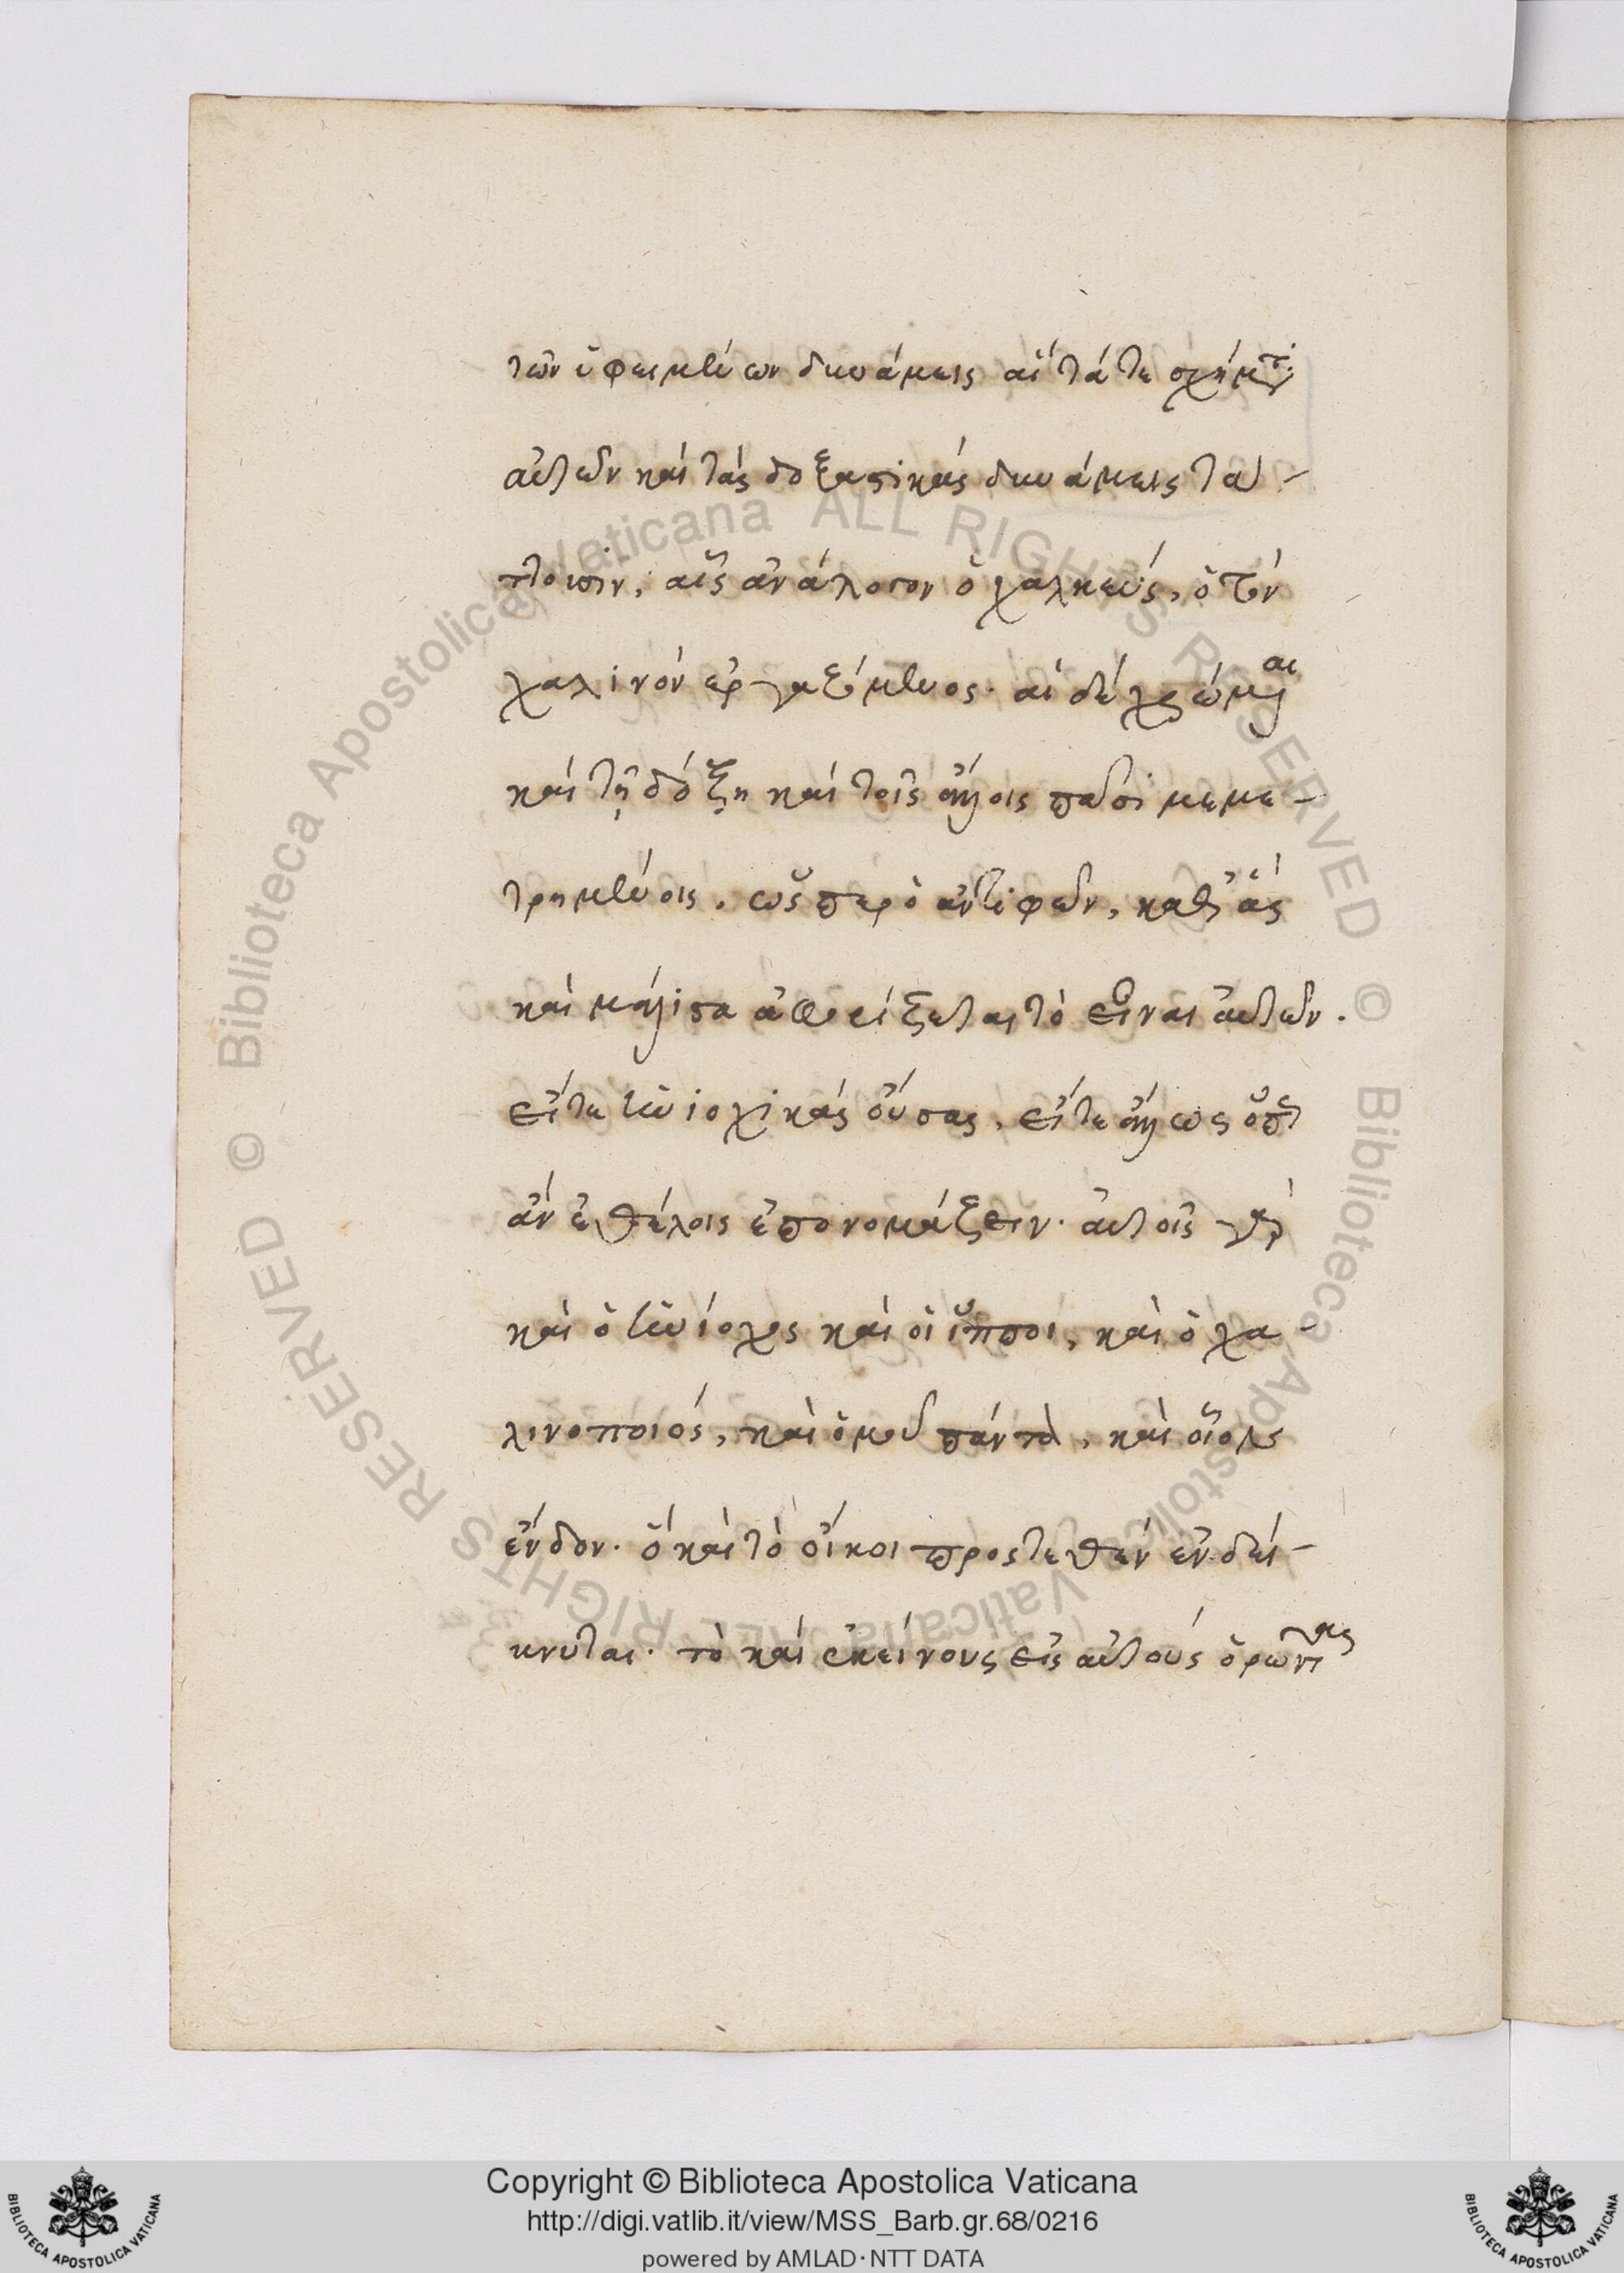 τῶν ὑφειμένων δυνάμεις αἵ τά τε σχήματα
αὐτῶν καὶ τὰς δοξαστικὰς δυνάμεις ταυ-
αἷς ἀνάλογον ὁ χαλκεύς, ὁ τὸν
χαλινὸν ἐργαζόμενος. αἱ δὲ χρώμεναι
καὶ τῇ δόξῃ καὶ τοῖς ἄλλοις πᾶσι μεμε-
τρημένοις. ὥσπερ ὁ Ἀντιφῶν, καθ' ἃς
καὶ μάλιστα ἀφορίζεται τὸ εἶναι αὐτῶν.
εἴτε ἡνιοχικὰς οὔσας, εἴτε ἄλλως ὅπῃ
ἂν ἐθέλοις ἐπονομάζειν. αὐτοῖς γὰρ
καὶ ὁ ἡνίοχος καὶ οἱ ἵπποι, καὶ ὁ χα-
λινοποιός, καὶ ὁμοῦ πάντα, καὶ οἷον
ἔνδον. ὃ καὶ τὸ οἴκοι προστεθὲν ἐνδεί-
κνυται. τὸ καὶ ἐκείνους εἰς αὐτοὺς ὁρῶντας
Copyright © Biblioteca Apostolica Vaticana
http://digi.vatlib.it/view/MSS_Barb.gr.68/0216
powered by AMLAD·NTT DATA
BIBLIOTECA APOSTOLICA VATICANA
BIBLIOTECA APOSTOLICA VATICANA
© Biblioteca Apostolica Vaticana ALL RIGHTS RESERVED © Biblioteca Apostolica Vaticana ALL RIGHTS RESERVED